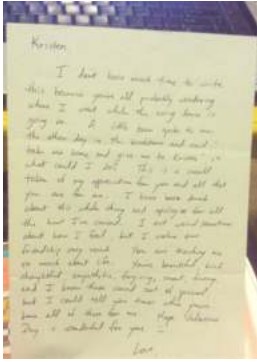 Kristen,
I don't have much time to write
this because you're all probably wondering
where I went while the song thing is
going on. A little bear spoke to me
the other day in the bookstore and said "
take me home and give me to Kristen" so
what could I do? This is a small
token of my appreciation for you and all that
you are for me. I know
about this whole thing and apologize for all
the hurt I've caused. I act weird sometimes
about how I feel, but I value our
friendship very much. You are teaching me
so much about life. You're beautiful, kind
thoughtful, empathetic, forgiving, sweet, loving
and I know those sound sort of general
but I could tell you times when you've
been all of those for me. Hope Valentines
Day is wonderful for you
Love,